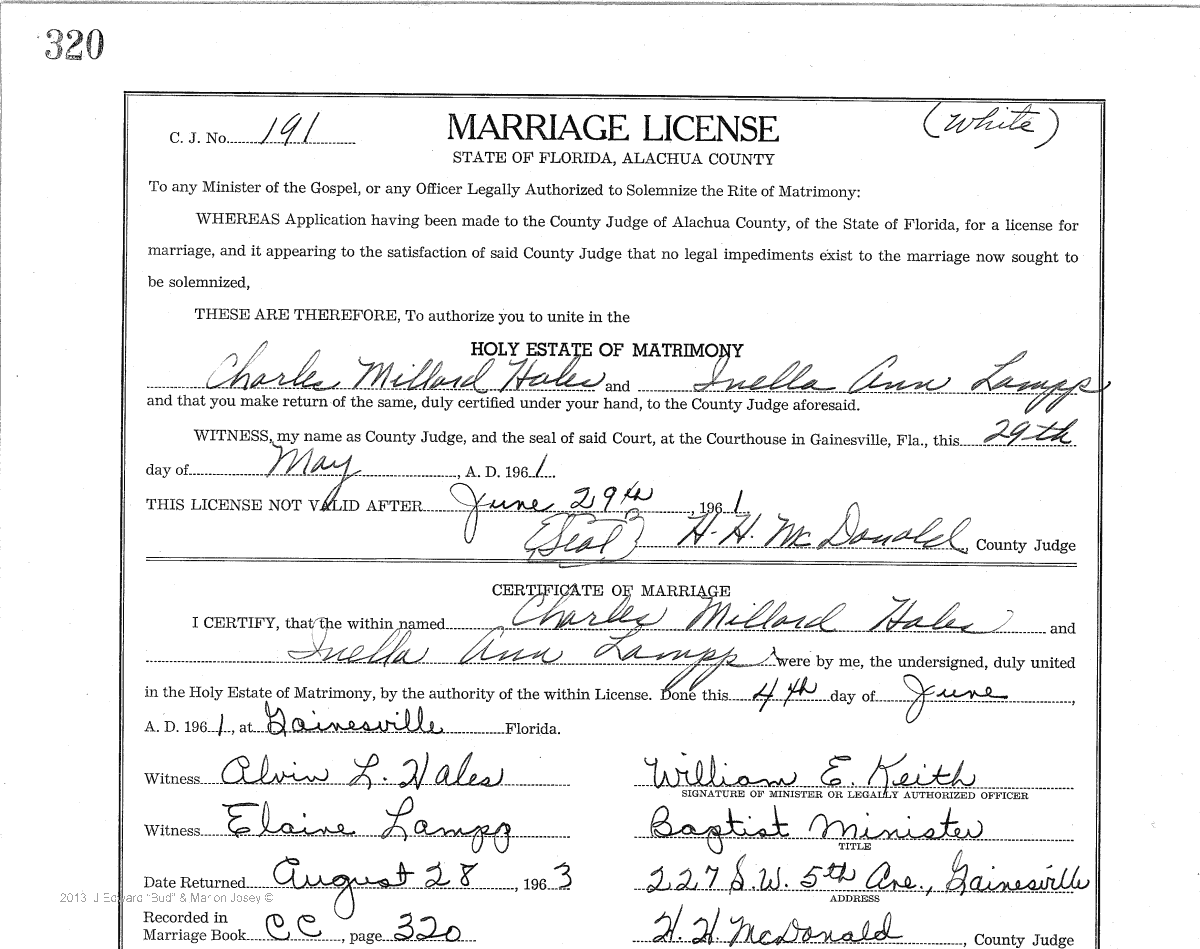 320
C. J. No. 191
MARRIAGE LICENSE
(White)
STATE OF FLORIDA, ALACHUA COUNTY
To any Minister of the Gospel, or any Officer Legally Authorized to Solemnize the Rite of Matrimony:
WHEREAS Application having been made to the County Judge of Alachua County, of the State of Florida, for a license for
marriage, and it appearing to the satisfaction of said County Judge that no legal impediments exist to the marriage now sought to
be solemnized,
THESE ARE THEREFORE, To authorize you to unite in the
HOLY ESTATE OF MATRIMONY
Charles Millard Hales and Inella Ann Lampp
and that you make return of the same, duly certified under your hand, to the County Judge aforesaid.
WITNESS, my name as County Judge, and the seal of said Court, at the Courthouse in Gainesville, Fla., this 29th
day of May, A. D. 1961.
THIS LICENSE NOT VALID AFTER June 29th, 1961.
(Seal) H. H. McDonald, County Judge
CERTIFICATE OF MARRIAGE
I CERTIFY, that the within named Charles Millard Hales and
Inella Ann Lampp were by me, the undersigned, duly united
in the Holy Estate of Matrimony, by the authority of the within License. Done this 4th day of June,
A. D. 1961, at Gainesville Florida.
Witness Alvin L. Hales
William E. Keith
SIGNATURE OF MINISTER OR LEGALLY AUTHORIZED OFFICER
Witness Elaine Lampp
Baptist Minister
TITLE
Date Returned August 28, 1963
227 S.W. 5th Ave., Gainesville
ADDRESS
2013 J Edward "Bud" & Marion Josey ©
Recorded in
Marriage Book CC, page 320
H. H. McDonald, County Judge